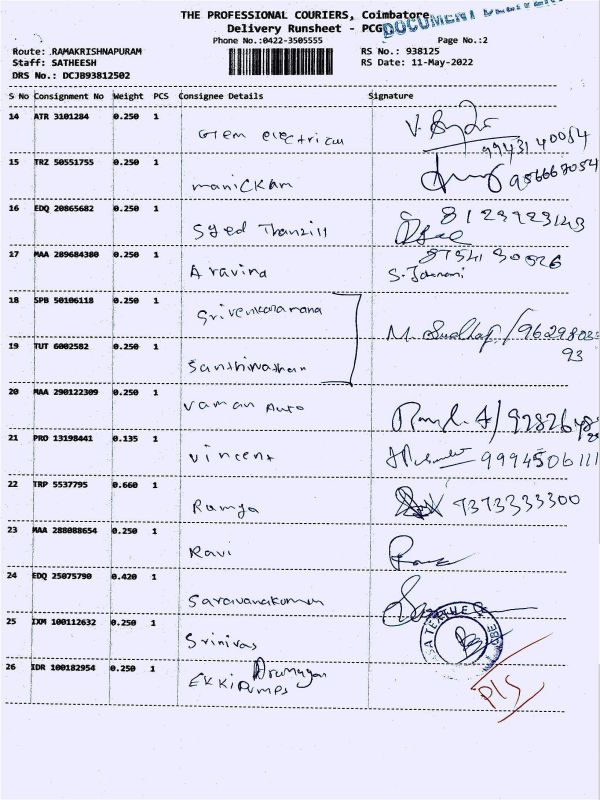 THE PROFESSIONAL COURIERS, Coimbatore
Delivery Runsheet - PCG
DOCUMENT
Phone No.:0422-3505555 Page No.:2
Route: RAMAKRISHNAPURAM RS No.: 938125
Staff: SATHEESH RS Date: 11-May-2022
DRS No.: DCJB93812502
S No Consignment No Weight PCS Consignee Details Signature
14 ATR 3101284 0.250 1 Gem electrical
9943140054
15 TRZ 50551755 0.250 1 manickam
16 EDQ 20865682 0.250 1 Syed 8123923143
17 MAA 289684380 0.250 1 Aravind 8754130526
18 SPB 50106118 0.250 1 Srivenkataramana
19 TUT 6002582 0.250 1
93
20 MAA 290122309 0.250 1 Vaman Auto
21 PRO 13198441 0.135 1 Vincent 9994506111
22 TRP 5537795 0.660 1 Ramya 7373333300
23 MAA 288088654 0.250 1 Ravi
24 EDQ 25075790 0.420 1 Saravanakumar
25 IXM 100112632 0.250 1 Srinivas
26 IDR 100182954 0.250 1 EKKI Pumps